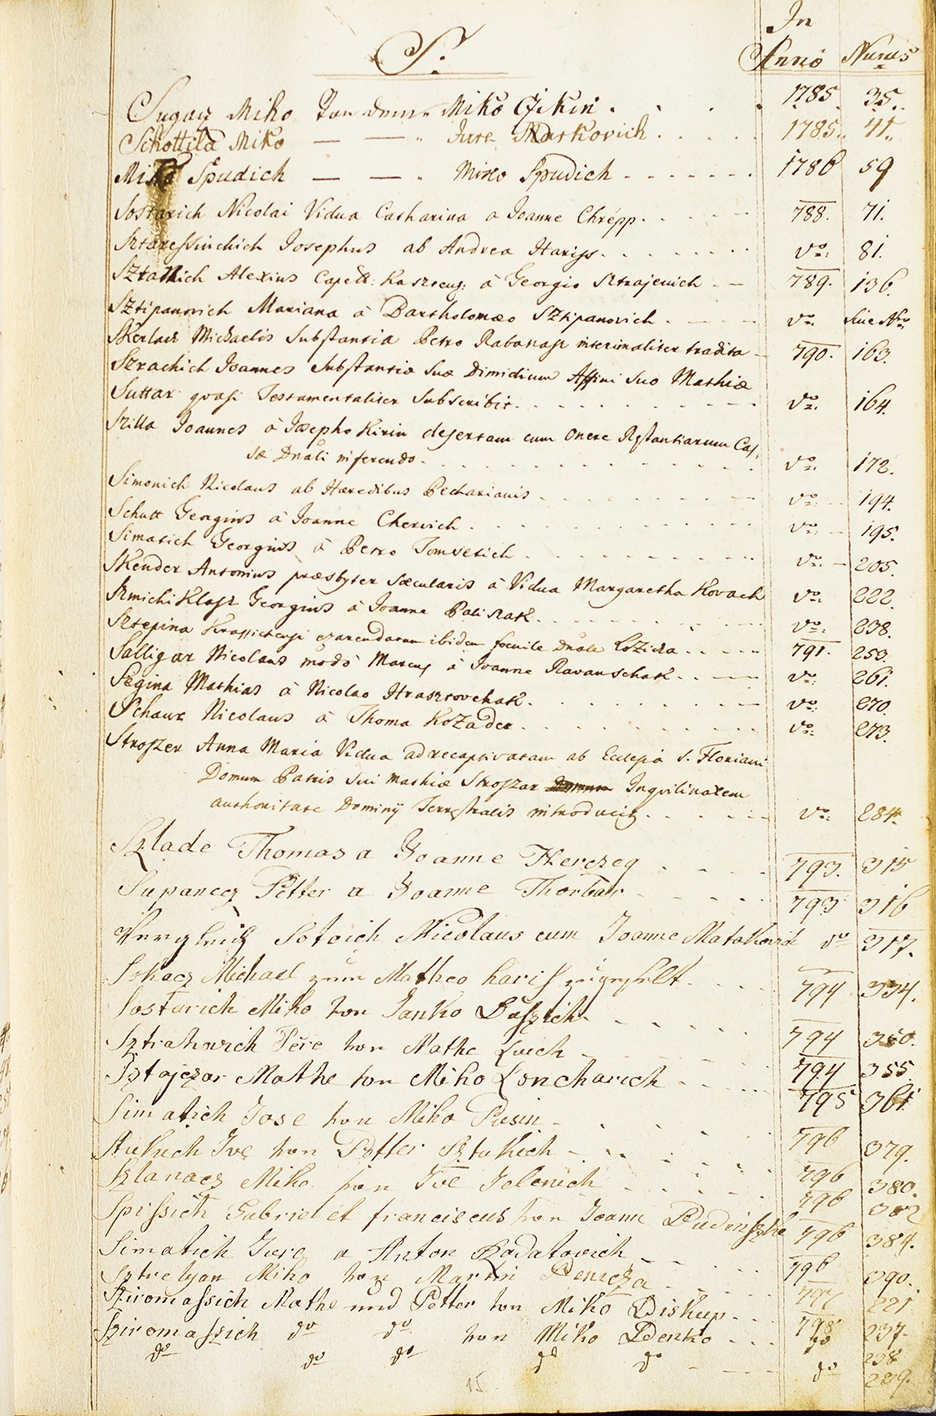 In
S. Anno Numus
Sugar Miko Von dmno Miko Gikin 1785. 35.
Schottila Miko — — " Jure Markovich 1785. 41.
Miko Spudich — — " Miko Spudich 1786 59
Sostarich Nicolai Vidua Catharina a Joanne Chrepp 788. 71.
Sztaressinchich Josephus ab Andrea Hariss do 81.
Alexius á Georgio Sztrajenich 789. 136.
Sztipanovich Mariana á Bartholomæo Sztipanovich do Sine No
Skerlacz Michaelis Substantia Petro interimaliter tradita 790. 163.
Szrachich Joannes Substantiæ Suæ Dimidium Affini Suo Mathiæ
Suttar quasi Testamentaliter Subscribit do 164.
Szilla Joannes á Josepho Kirin desertam cum Onere Restantiarum Cas,
sæ Dnali inferendo do 172.
Simonich Nicolaus ab Hæredibus Pecharianis do 194.
Schutt Georgius á Joanne Chervich do 195.
Simatich Georgius á Petro Tomsetich do 205.
Skender Antonius præsbyter sæcularis á Vidua Margaretha Kovach do 222.
Szmichiklasz Georgius á Joanne Palisak do 238.
Sztepina exarendatum ibidem foenile Dnale 791. 253.
Salligar Nicolaus modo á Joanne Ravanschak do 261.
Segina Mathias á Nicolao Hrasztovchak do 270.
Schauz Nicolaus á Thoma Kozader do 273.
Stroszer Anna Maria Vidua ad recaptivatam ab Ecclesia S. Floriani
Domum Patris Sui Mathiæ Stroszar Inquilinalem
authoritate Dominij Terrestralis introducitur do 284.
Szlade Thomas a Joanne Herczeg 793. 315
Supanecz Petter a Joanne Thorbar 793 316
Vergleich Sotoich Nicolaus cum Joanne Matakovich do 317.
Michael zum Matheo Hariss zugestelt 794 334.
Sosturich Miko von Janko Bussich 350.
Sztrahnich Pere von Mathe Luich 794
Sztajczar Mathe von Miko Loncharich 794 355
Simatich Jose von Miko Pusin 795 361
Stukich Ive von Petter Sztukich 796 379.
Szlanacz Miko von Ive Jelenich 796 380.
Spissich Gabriel et franciscus von Joanne 796 382
Simatich Jure a Anton Badatovich 796 384.
Sztrelyan Miko von Martin Denicza 796 390.
Sziromassich Mathe und Petter von Miko Biskup 221
Sziromassich do do von Miko Denko 798 237.
do do do do do do 238
do 239.
15